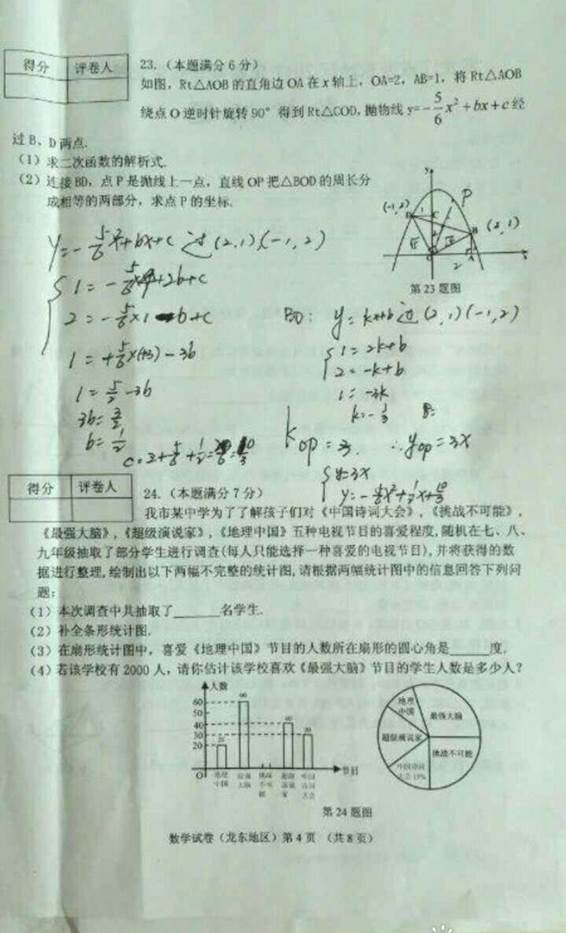 得分 评卷人
23.（本题满分6分）
如图，Rt△AOB的直角边OA在x轴上，OA=2，AB=1，将Rt△AOB
绕点O逆时针旋转90°得到Rt△COD，抛物线y=-5/6x²+bx+c经
过B、D两点.
（1）求二次函数的解析式.
（2）连接BD，点P是抛线上一点，直线OP把△BOD的周长分
成相等的两部分，求点P的坐标.
(-1,2)
P
(2,1)
2
第23题图
y=-5/6x²+bx+c 过(2,1)(-1,2)
1=-5/6×4+2b+c
2=-5/6×1-b+c
1=+5/6×(+3)-3b
1=5/2-3b
3b=3/2
b=1/2
c=2+5/6+1/2=
BD: y=kx+b过(2,1)(-1,2)
1=2k+b
2=-k+b
1=-3k
k=-1/3
kop=3. ∴yop=3x
y=3x
y=-5/6x²+1/2x+10/3
得分 评卷人
24.（本题满分7分）
我市某中学为了了解孩子们对《中国诗词大会》，《挑战不可能》，
《最强大脑》，《超级演说家》，《地理中国》五种电视节目的喜爱程度，随机在七、八、
九年级抽取了部分学生进行调查(每人只能选择一种喜爱的电视节目)，并将获得的数
据进行整理，绘制出以下两幅不完整的统计图，请根据两幅统计图中的信息回答下列问
题：
（1）本次调查中共抽取了______名学生.
（2）补全条形统计图.
（3）在扇形统计图中，喜爱《地理中国》节目的人数所在扇形的圆心角是______度.
（4）若该学校有2000人，请你估计该学校喜欢《最强大脑》节目的学生人数是多少人？
人数
60
50
40
30
20
O
20
60
40
30
节目
地理中国
最强大脑
超级演说家
挑战不可能
第24题图
数学试卷（龙东地区）第4页 （共8页）